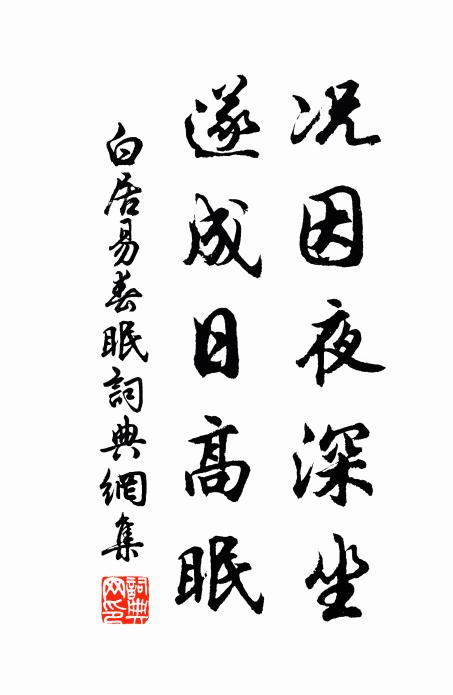 况因夜深坐
遂成日高眠
白居易春眠詞典網集
詞典网印